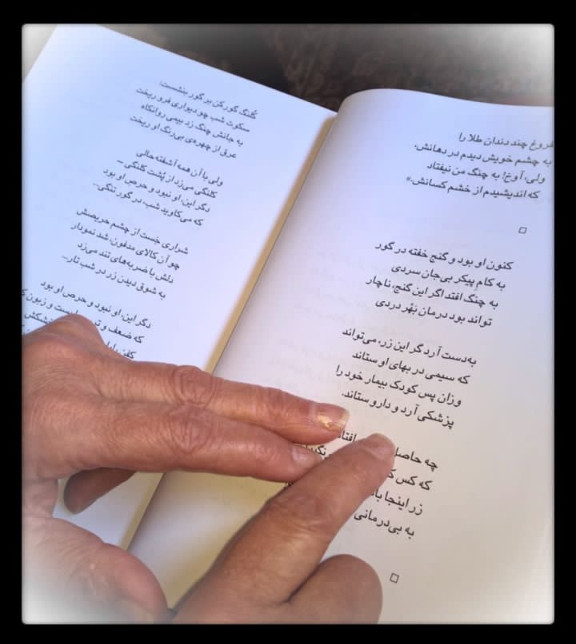 فروغ چند دندان طلا را
به چشم خویش دیدم در دهانش،
ولی، آوخ! به چنگ من نیفتاد
که اندیشیدم از خشم کسانش.»
کنون او بود و گنج خفته در گور
به کام پیکر بی‌جان سردی
به چنگ افتد اگر این گنج، ناچار
تواند بود درمان بَهْر دردی
به‌دست آرد گر این زر، می‌تواند
که سیمی در بهای او ستاند
وزان پس کودک بیمار خود را
پزشکی آرد و دارو ستاند.
چه حاصل
که کس
زر اینجا
به بی‌درمانی
کلنگ گورکن بر گور بنشست:
سکوت شب چو دیواری فرو ریخت
به جانش چنگ زد بیمی روانکاه
عرق از چهره‌ی بی‌رنگ او ریخت
ولی با آن همه آشفته‌حالی
کلنگی می‌زد از پُشت کلنگی ــ
دگر این، او نبود و حرص او بود
که می‌کاوید شب، در گور تنگی.ــ
شراری جَست از چشم حریصش
چو آن کالای مدفون، شد نمودار
دلش با ضربه‌های تند می‌زد
به شوق دیدن زر در شب تار...
دگر این، او نبود و حرص او بود
که ضعف و
کفن را